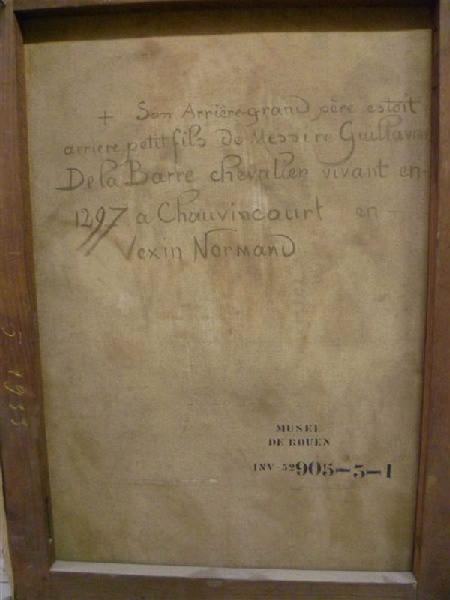 + Son Arrière-grand père estoit
arriere petit fils de Messire Guillaume
De la Barre chevalier vivant en-
1297 a Chauvincourt en -
Vexin Normand
MUSEE
DE ROUEN
INV-52 905-5-1
5 1933